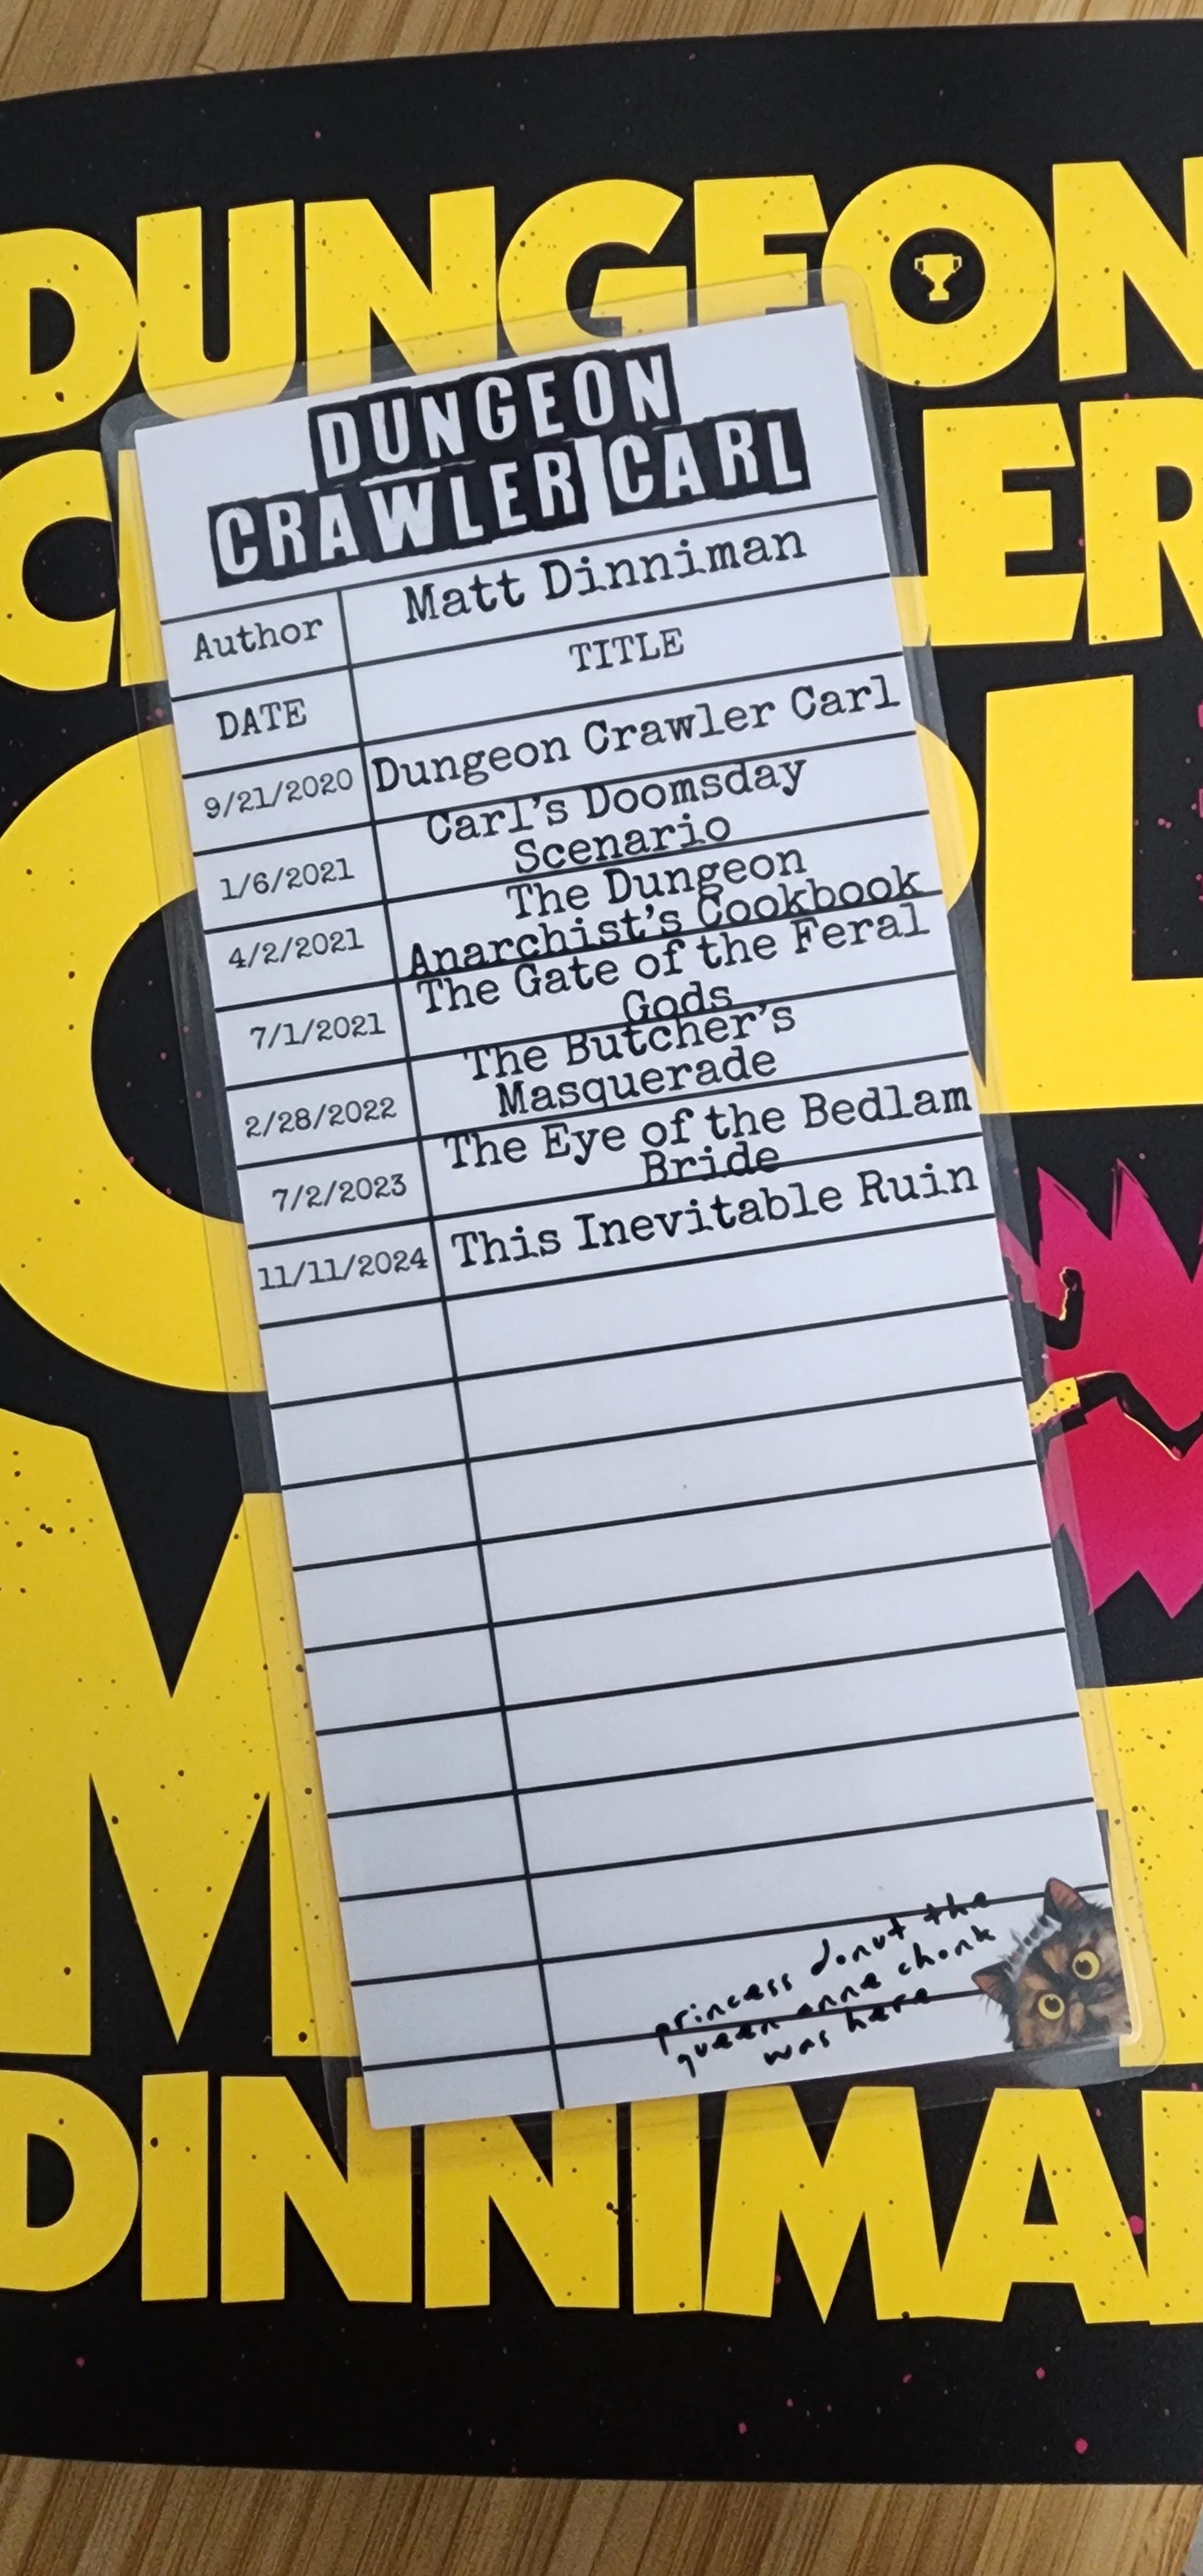 DUNGEON
DUNGEON
CRAWLER CARL
Author
Matt Dinniman
DATE
TITLE
9/21/2020
Dungeon Crawler Carl
1/6/2021
Carl's Doomsday
Scenario
4/2/2021
The Dungeon
Anarchist's Cookbook
7/1/2021
The Gate of the Feral
Gods
2/28/2022
The Butcher's
Masquerade
7/2/2023
The Eye of the Bedlam
Bride
11/11/2024
This Inevitable Ruin
princess donut the
queen anne chonk
was here
DINNIMA